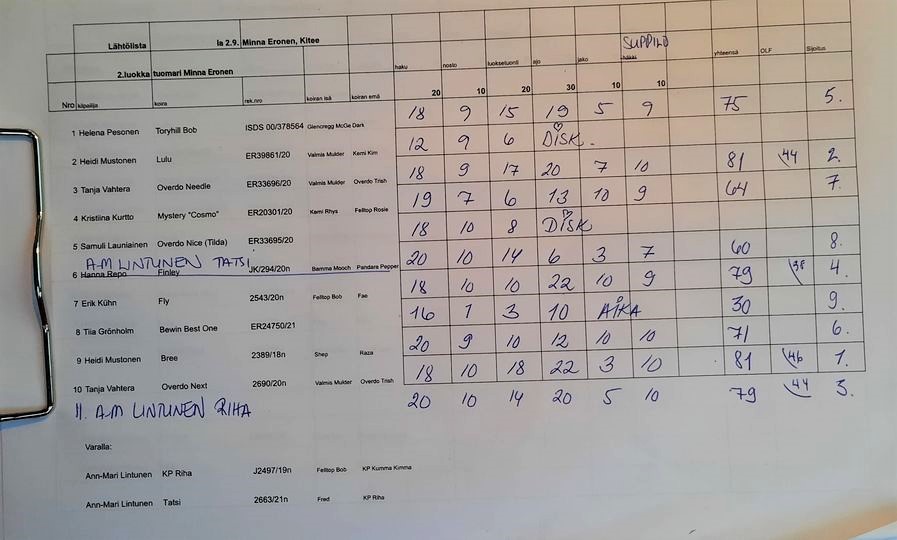 Lähtölista la 2.9. Minna Eronen, Kitee
SUPPILO
2.luokka tuomari Minna Eronen haku nosto luoksetuonti ajo jako häkki yhteensä OLF Sijoitus
20 10 20 30 10 10
Nro kilpailija koira rek.nro koiran isä koiran emä
1 Helena Pesonen Toryhill Bob ISDS 00/378564 Glencregg McGe Dark 18 9 15 19 5 9 75 5.
2 Heidi Mustonen Lulu ER39861/20 Valmis Mulder Kemi Kim 12 9 6 DISK.
3 Tanja Vahtera Overdo Needle ER33696/20 Valmis Mulder Overdo Trish 18 9 17 20 7 10 81 44 2.
4 Kristiina Kurtto Mystery "Cosmo" ER20301/20 Kemi Rhys Felltop Rosie 19 7 6 13 10 9 64 7.
5 Samuli Launiainen Overdo Nice (Tilda) ER33695/20 18 10 8 DISK
A-M LINTUNEN TATSI
6 Hanna Repo Finley JK/294/20n Bamma Mooch Pandara Pepper 20 10 14 6 3 7 60 8.
7 Erik Kühn Fly 2543/20n Felltop Bob Fae 18 10 10 22 10 9 79 38 4.
8 Tiia Grönholm Bewin Best One ER24750/21 16 1 3 10 AIKA 30 9.
9 Heidi Mustonen Bree 2389/18n Shep Raza 20 9 10 12 10 10 71 6.
10 Tanja Vahtera Overdo Next 2690/20n Valmis Mulder Overdo Trish 18 10 18 22 3 10 81 46 1.
11. A-M LINTUNEN RIHA 20 10 14 20 5 10 79 44 3.
Varalla:
Ann-Mari Lintunen KP Riha J2497/19n Felltop Bob KP Kumma Kimma
Ann-Mari Lintunen Tatsi 2663/21n Fred KP Riha